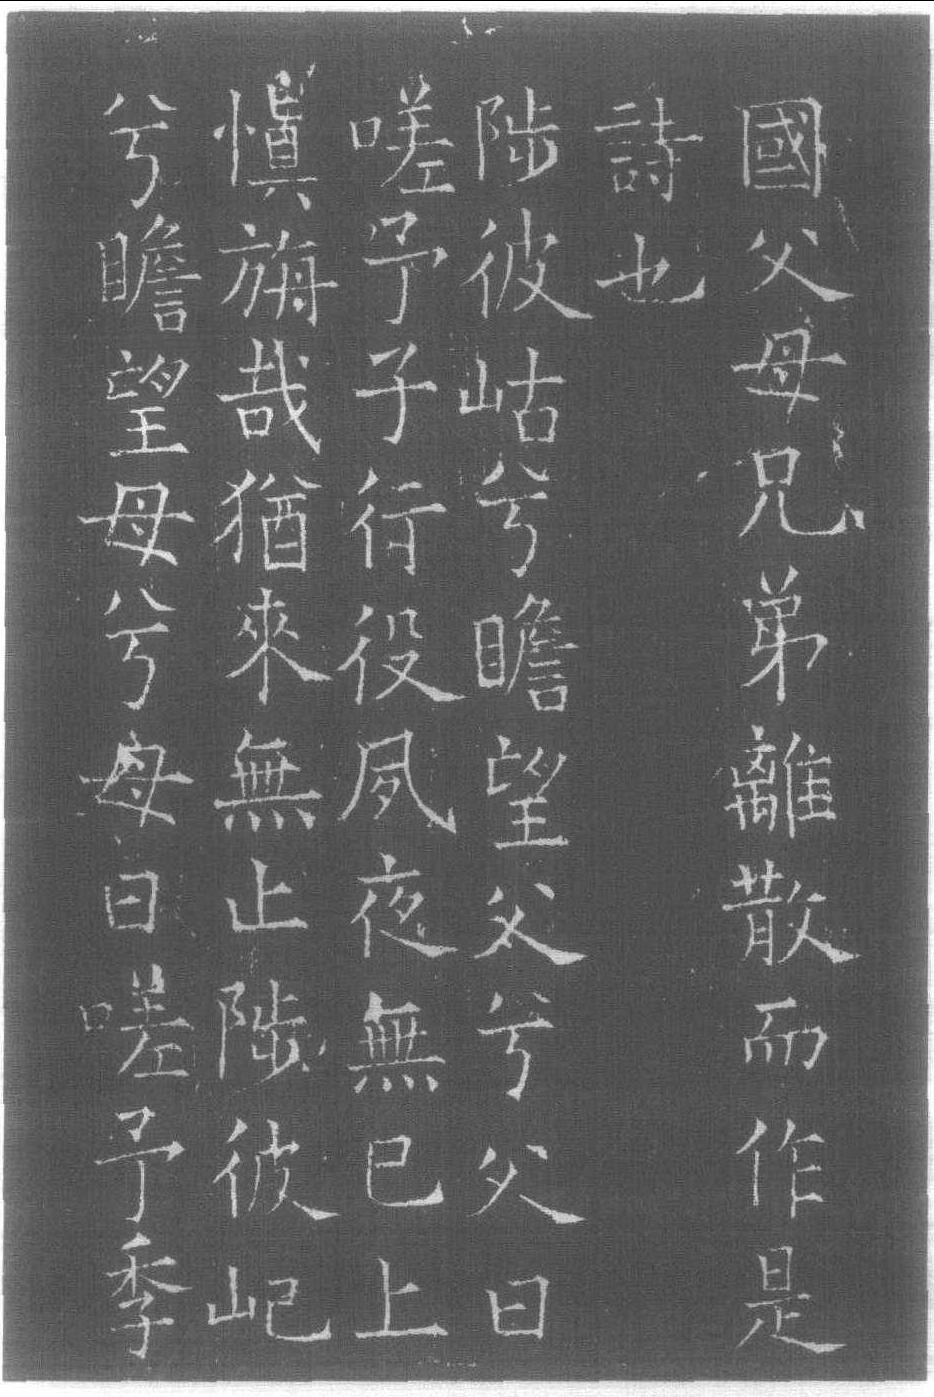 國父母兄弟離散而作是
詩也
陟彼岵兮瞻望父兮父曰
嗟予子行役夙夜無已上
慎旃哉猶來無止陟彼屺
兮瞻望母兮母曰嗟予季